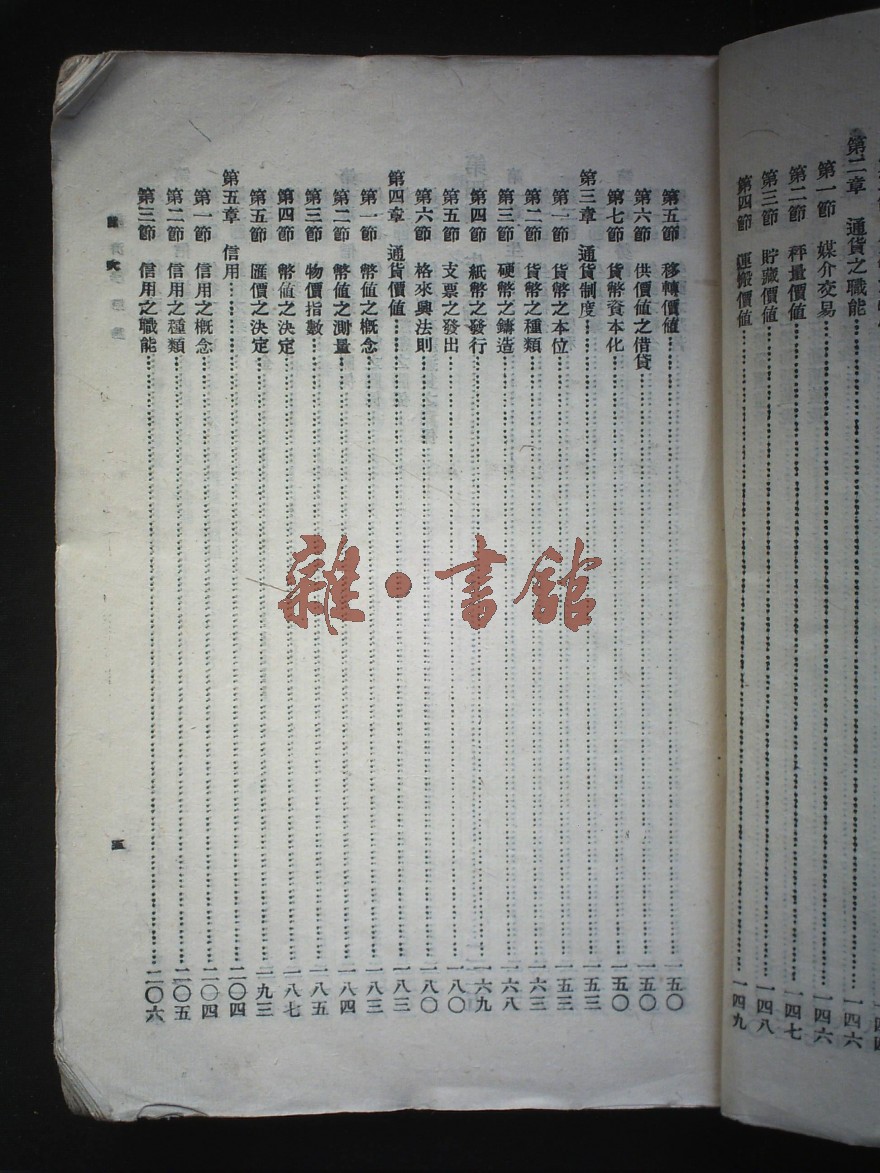 第二章　通貨之職能……一四六
第一節　媒介交易……一四六
第二節　秤量價值……一四七
第三節　貯藏價值……一四八
第四節　運搬價值……一四九
第五節　移轉價值……一五〇
第六節　供價值之借貸……一五〇
第七節　貨幣資本化……一五〇
第三章　通貨制度……一五三
第一節　貨幣之本位……一五三
第二節　貨幣之種類……一六三
第三節　硬幣之鑄造……一六八
第四節　紙幣之發行……一六九
第五節　支票之發出……一八〇
第六節　格來興法則……一八〇
第四章　通貨價值……一八三
第一節　幣值之概念……一八三
第二節　幣值之測量……一八四
第三節　物價指數……一八五
第四節　幣值之決定……一八七
第五節　匯價之決定……一九三
第五章　信用……二〇四
第一節　信用之概念……二〇四
第二節　信用之種類……二〇五
第三節　信用之職能……二〇六
五
雜·書館